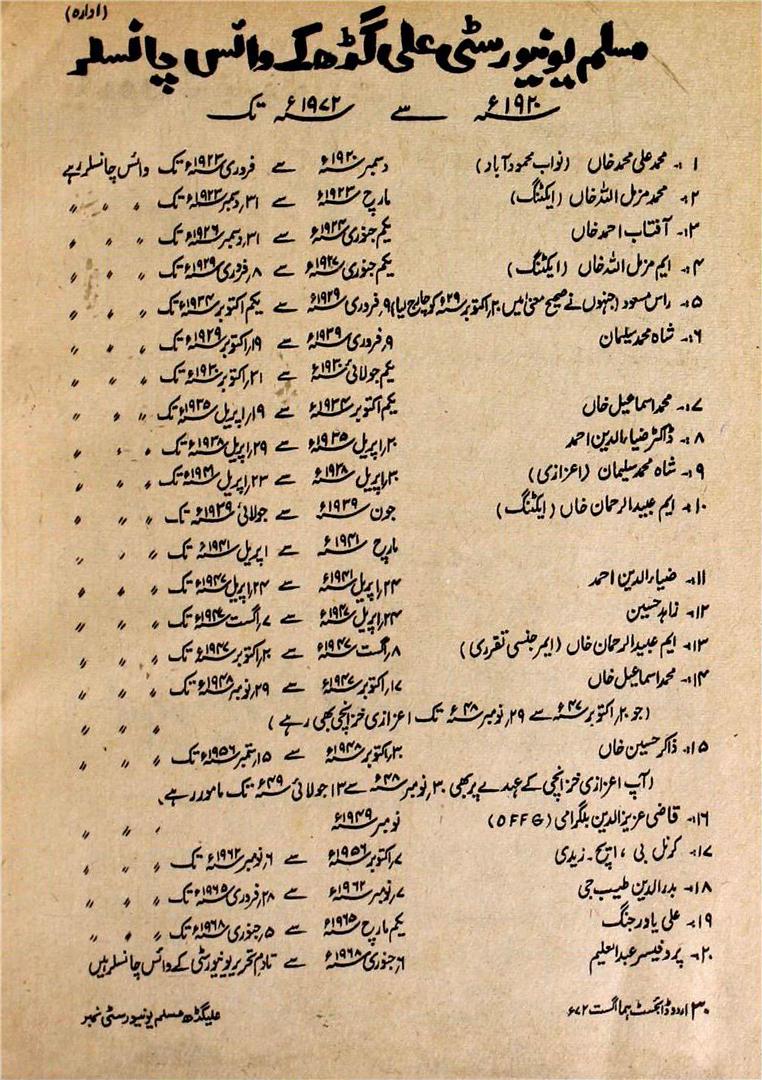 (ادارہ)
مسلم یونیورسٹی علی گڑھ کے وائس چانسلر
سنہ ۱۹۲۰ء سے سنہ ۱۹۷۲ء تک
۱:- محمد علی محمد خاں (نواب محمود آباد) دسمبر سنہ ۱۹۲۰ء سے فروری سنہ ۱۹۲۳ء تک وائس چانسلر رہے
۲:- محمد مزمل اللہ خاں (ایکٹنگ) مارچ سنہ ۱۹۲۳ء سے ۳۱؍دسمبر سنہ ۱۹۲۳ء تک 〃 〃 〃
۳:- آفتاب احمد خاں یکم جنوری سنہ ۱۹۲۴ء سے ۳۱؍دسمبر سنہ ۱۹۲۶ء تک 〃 〃 〃
۴:- ایم مزمل اللہ خاں (ایکٹنگ) یکم جنوری سنہ ۱۹۲۷ء سے ۸؍فروری سنہ ۱۹۲۹ء تک 〃 〃 〃
۵:- راس مسعود (جنہوں نے صحیح معنیٰ میں ۲۰؍اکتوبر سنہ ۲۹ء کو چارج لیا) ۹؍فروری سنہ ۱۹۲۹ء سے یکم اکتوبر سنہ ۱۹۳۴ء تک 〃 〃 〃
۶:- شاہ محمد سلیمان ۹؍فروری سنہ ۱۹۲۹ء سے ۱۹؍اکتوبر سنہ ۱۹۲۹ء تک 〃 〃 〃
یکم جولائی سنہ ۱۹۳۰ء سے ۲۱؍اکتوبر سنہ ۱۹۳۰ء تک 〃 〃 〃
۷:- محمد اسماعیل خاں یکم اکتوبر سنہ ۱۹۳۴ء سے ۱۹؍اپریل سنہ ۱۹۳۵ء تک 〃 〃 〃
۸:- ڈاکٹر ضیاءالدین احمد ۲۰؍اپریل سنہ ۱۹۳۵ء سے ۲۹؍اپریل سنہ ۱۹۳۸ء تک 〃 〃 〃
۹:- شاہ محمد سلیمان (اعزازی) ۳۰؍اپریل سنہ ۱۹۳۸ء سے ۲۳؍اپریل سنہ ۱۹۴۱ء تک 〃 〃 〃
۱۰:- ایم عبید الرحمان خاں (ایکٹنگ) جون سنہ ۱۹۳۹ء سے جولائی سنہ ۱۹۳۹ء تک 〃 〃 〃
مارچ سنہ ۱۹۴۱ء سے اپریل سنہ ۱۹۴۱ء تک 〃 〃 〃
۱۱:- ضیاءالدین احمد ۲۴؍اپریل سنہ ۱۹۴۱ء سے ۲۴؍اپریل سنہ ۱۹۴۷ء تک 〃 〃 〃
۱۲:- زاہد حسین ۲۴؍اپریل سنہ ۱۹۴۷ء سے ۷؍اگست سنہ ۱۹۴۷ء تک 〃 〃 〃
۱۳:- ایم عبید الرحمان خاں (ایمرجنسی تقرری) ۸؍اگست سنہ ۱۹۴۷ء سے ۲۰؍اکتوبر سنہ ۱۹۴۷ء تک 〃 〃 〃
۱۴:- محمد اسماعیل خاں ۱۷؍اکتوبر سنہ ۱۹۴۷ء سے ۲۹؍نومبر سنہ ۱۹۴۸ء تک 〃 〃 〃
(جو ۲۰؍اکتوبر سنہ ۴۷ء سے ۲۹؍نومبر سنہ ۴۸ء تک اعزازی خزانچی بھی رہے) 〃 〃 〃
۱۵:- ذاکر حسین خاں ۳۰؍اکتوبر سنہ ۱۹۴۸ء سے ۱۵؍ستمبر سنہ ۱۹۵۶ء تک 〃 〃 〃
(آپ اعزازی خزانچی کے عہدے پر بھی ۳۰؍نومبر سنہ ۴۸ء سے ۱۳؍جولائی سنہ ۴۹ء تک مامور رہے)
۱۶:- قاضی عزیز الدین بلگرامی (OFFG) نومبر سنہ ۱۹۴۹ء 〃 〃 〃
۱۷:- کرنل بی، ایچ۔ زیدی ۷؍اکتوبر سنہ ۱۹۵۶ء سے ۶؍نومبر سنہ ۱۹۶۲ء تک 〃 〃 〃
۱۸:- بدر الدین طیب جی ۷؍نومبر سنہ ۱۹۶۲ء سے ۲۸؍فروری سنہ ۱۹۶۵ء تک 〃 〃 〃
۱۹:- علی یاور جنگ یکم مارچ سنہ ۱۹۶۵ء سے ۵؍جنوری سنہ ۱۹۶۸ء تک 〃 〃 〃
۲۰:- پروفیسر عبدالعلیم ۶؍جنوری سنہ ۱۹۶۸ء سے تادم تحریر یونیورسٹی کے وائس چانسلر ہیں
۳۰ اردو ڈائجسٹ ہما اگست ۶۷۲ علیگڈھ مسلم یونیورسٹی نمبر